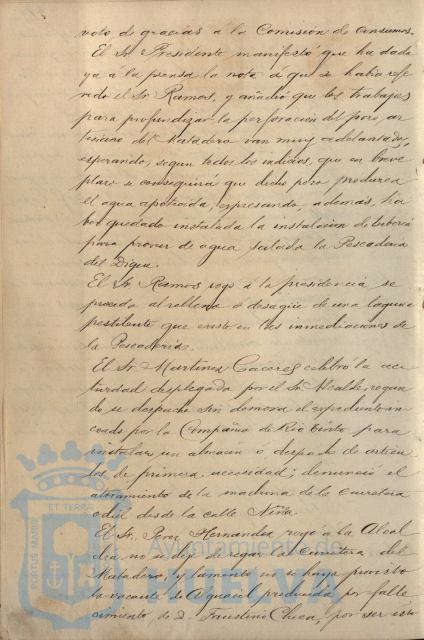 voto de gracias a la Comisión de consumos.
El Sr. Presidente manifestó que ha dado
ya á la prensa la nota á que se habia refe
rido el Sr. Ramos, y añadió que los trabajos
para profundizar la perforación del pozo ar
tesiano del Matadero van muy adelantados,
esperando, segun todos los indicios, que en breve
plazo se conseguirá que dicho pozo produzca
el agua apetecida, expresando, además, ha
ber quedado instalada la instalacion de tuberia
para proveer de agua salada la Pescaderia
del Dique.
El Sr. Ramos rogó á la presidencia se
proceda al relleno ó desagüe de una laguna
pestilente que existe en las inmediaciones de
la Pescaderia.
El Sr. Martinez Caceres celebró la ac
tividad desplegada por el Sr. Alcalde, rogan
do se despache sin demora el expediente in
coado por la Compañia de Rio Tinto para
instalar un almacén ó despacho de articu
los de primera necesidad; denunció el
de la de la Carretera
desde la calle Niña.
El Sr. Perez Hernandez rogó á la Alcal
dia no se deje de regar la Carretera del
Matadero, y lamentó no se haya provisto
la vacante de Aguacil producida por falle
cimiento de D. Faustino Checa, por ser esto
PORTUS MARIS ET TERRAE
Ayuntamiento de
HUELVA